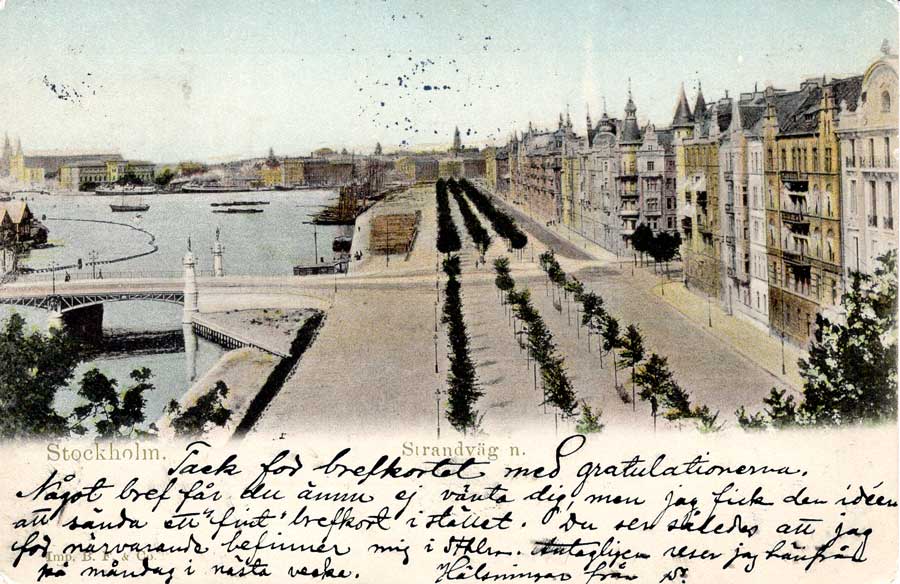 Stockholm.
Strandvägn.
Tack för brefkortet med gratulationerna.
Något bref får du ännu ej vänta dig, men jag fick den idéen
att sända ett "fint" brefkort i stället. Du ser således att jag
för närvarande befinner mig i Sthlm. Antagligen reser jag härifrån
på måndag i nästa vecka. Hälsningar från
Imp. B. F. &